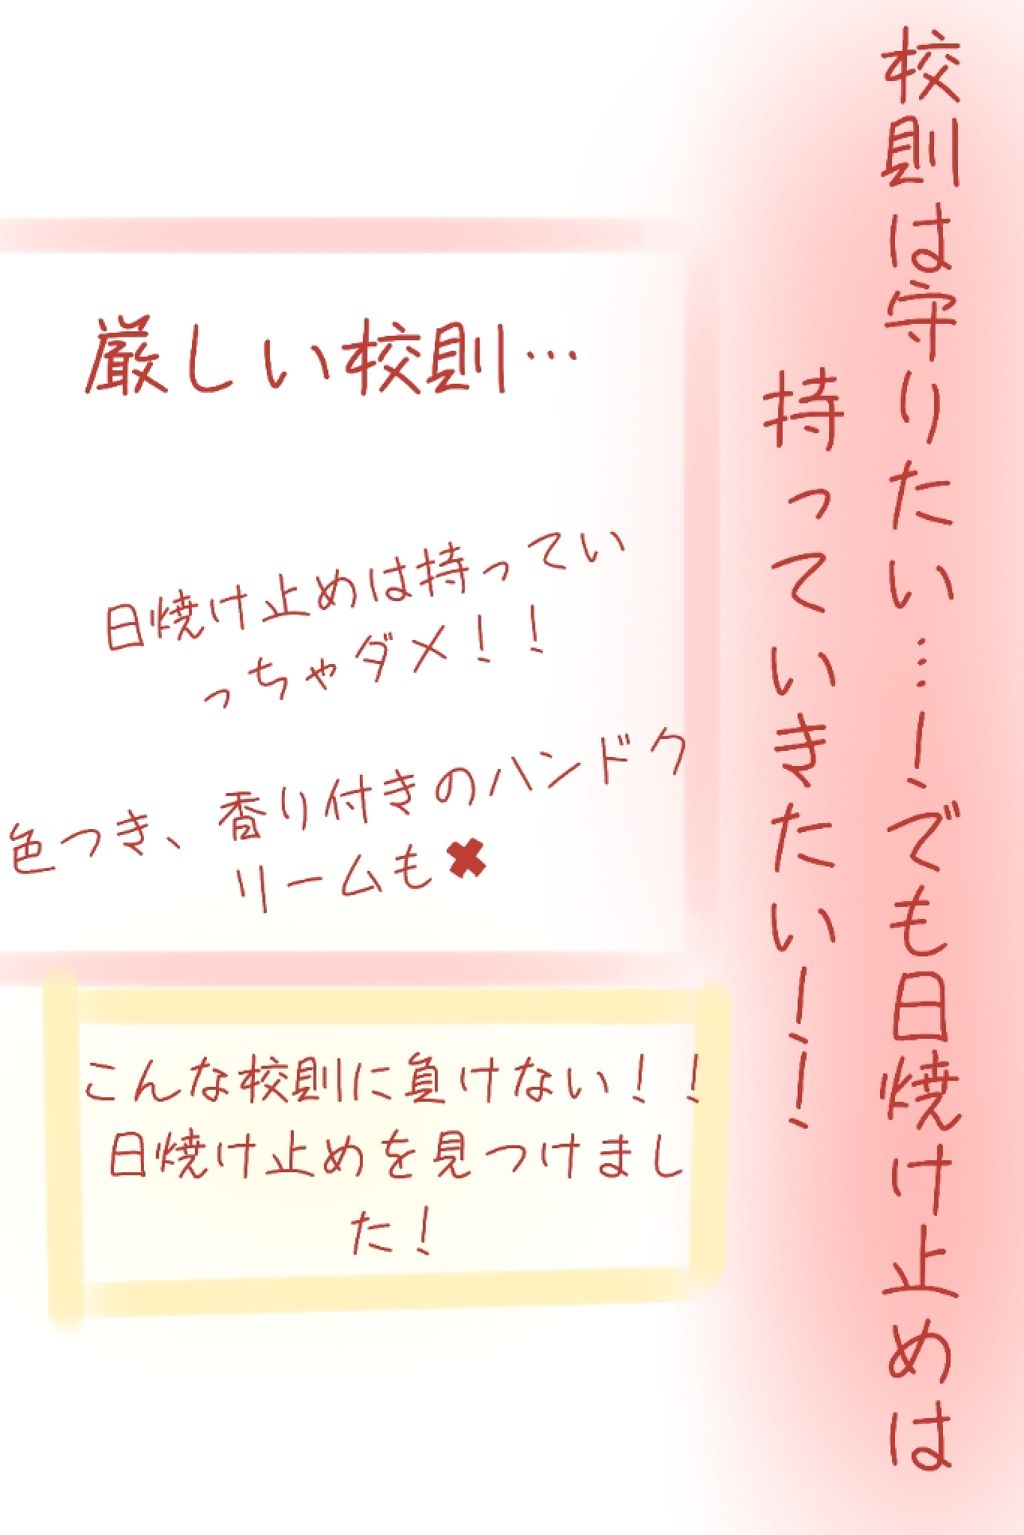 校則は守りたい…!でも日焼け止めは
持っていきたい!!
厳しい校則…
日焼け止めは持ってい
っちゃダメ!!
色つき、香り付きのハンドク
リームも✖
こんな校則に負けない!!
日焼け止めを見つけまし
た!